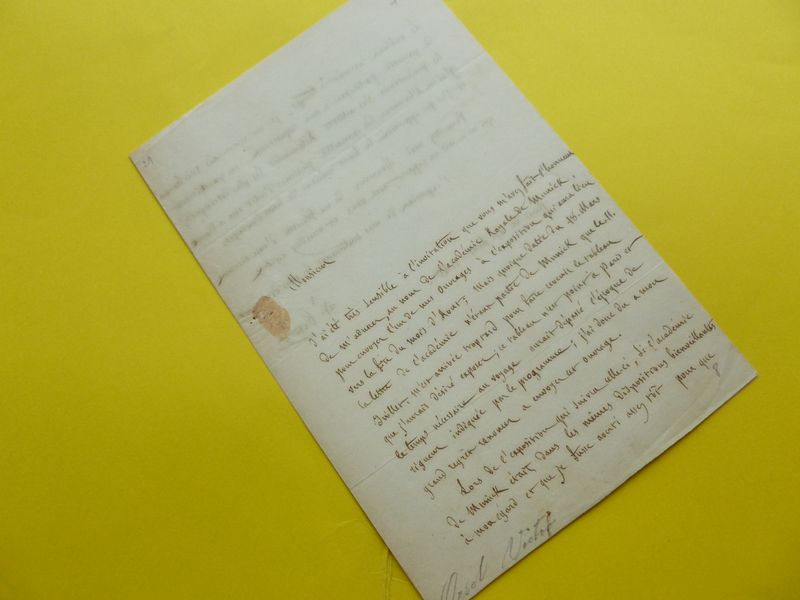 Monsieur
J'ai été très sensible à l'invitation que vous m'avez fait l'honneur
de m'adresser, au nom de l'académie Royale de Munick,
pour envoyer l'un de mes ouvrages à l'exposition qui aura lieu
vers la fin du mois d'Aout; Mais quoique datée du 18. Mars
la lettre de l'académie n'étant partie de Munick que le 11.
Juillet, m'est arrivée trop tard pour faire le tableau
que j'aurais désiré exposer; ce tableau n'est point à Paris et
le temps nécessaire au voyage aurait dépassé l'époque de
rigueur indiquée par le programme; j'ai donc du à mon
grand regret renoncer à envoyer cet ouvrage.
Lors de l'exposition qui suivra celle-ci, si l'académie
de Munick était dans les mêmes dispositions bienveillantes
à mon égard et que je fusse averti assez tôt pour que
Orsel Victor